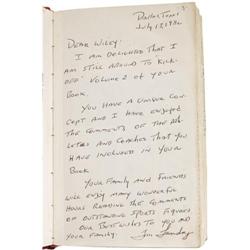 Dallas Texas
July 17, 1986
DEAR WILEY:
I AM DELIGHTED THAT I
AM STILL AROUND TO KICK-
OFF VOLUME 2 OF YOUR
BOOK.
YOU HAVE A UNIQUE CON-
CEPT AND I HAVE ENJOYED
THE COMMENTS OF THE ATH-
LETES AND COACHES THAT YOU
HAVE INCLUDED IN YOUR
BOOK
YOUR FAMILY AND FRIENDS
WILL ENJOY MANY WONDERFUL
HOURS READING THE COMMENTS
OF OUTSTANDING SPORTS FIGURES
OUR BEST WISHES TO YOU AND
YOUR FAMILY. Tom Landry